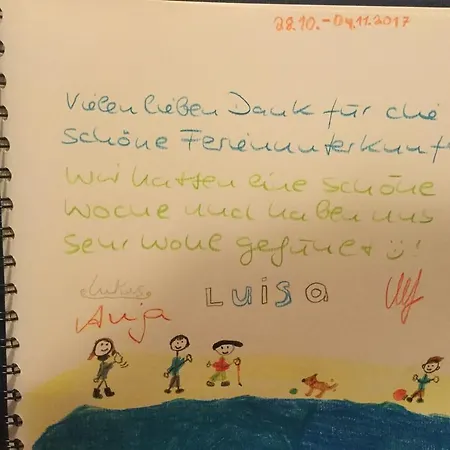 28.10.-04.11.2017
Vielen lieben Dank für die
schöne Ferienunterkunft
Wir hatten eine schöne
Woche und haben uns
sehr wohl gefühlt !
Lukas Luisa Ulf
Anja